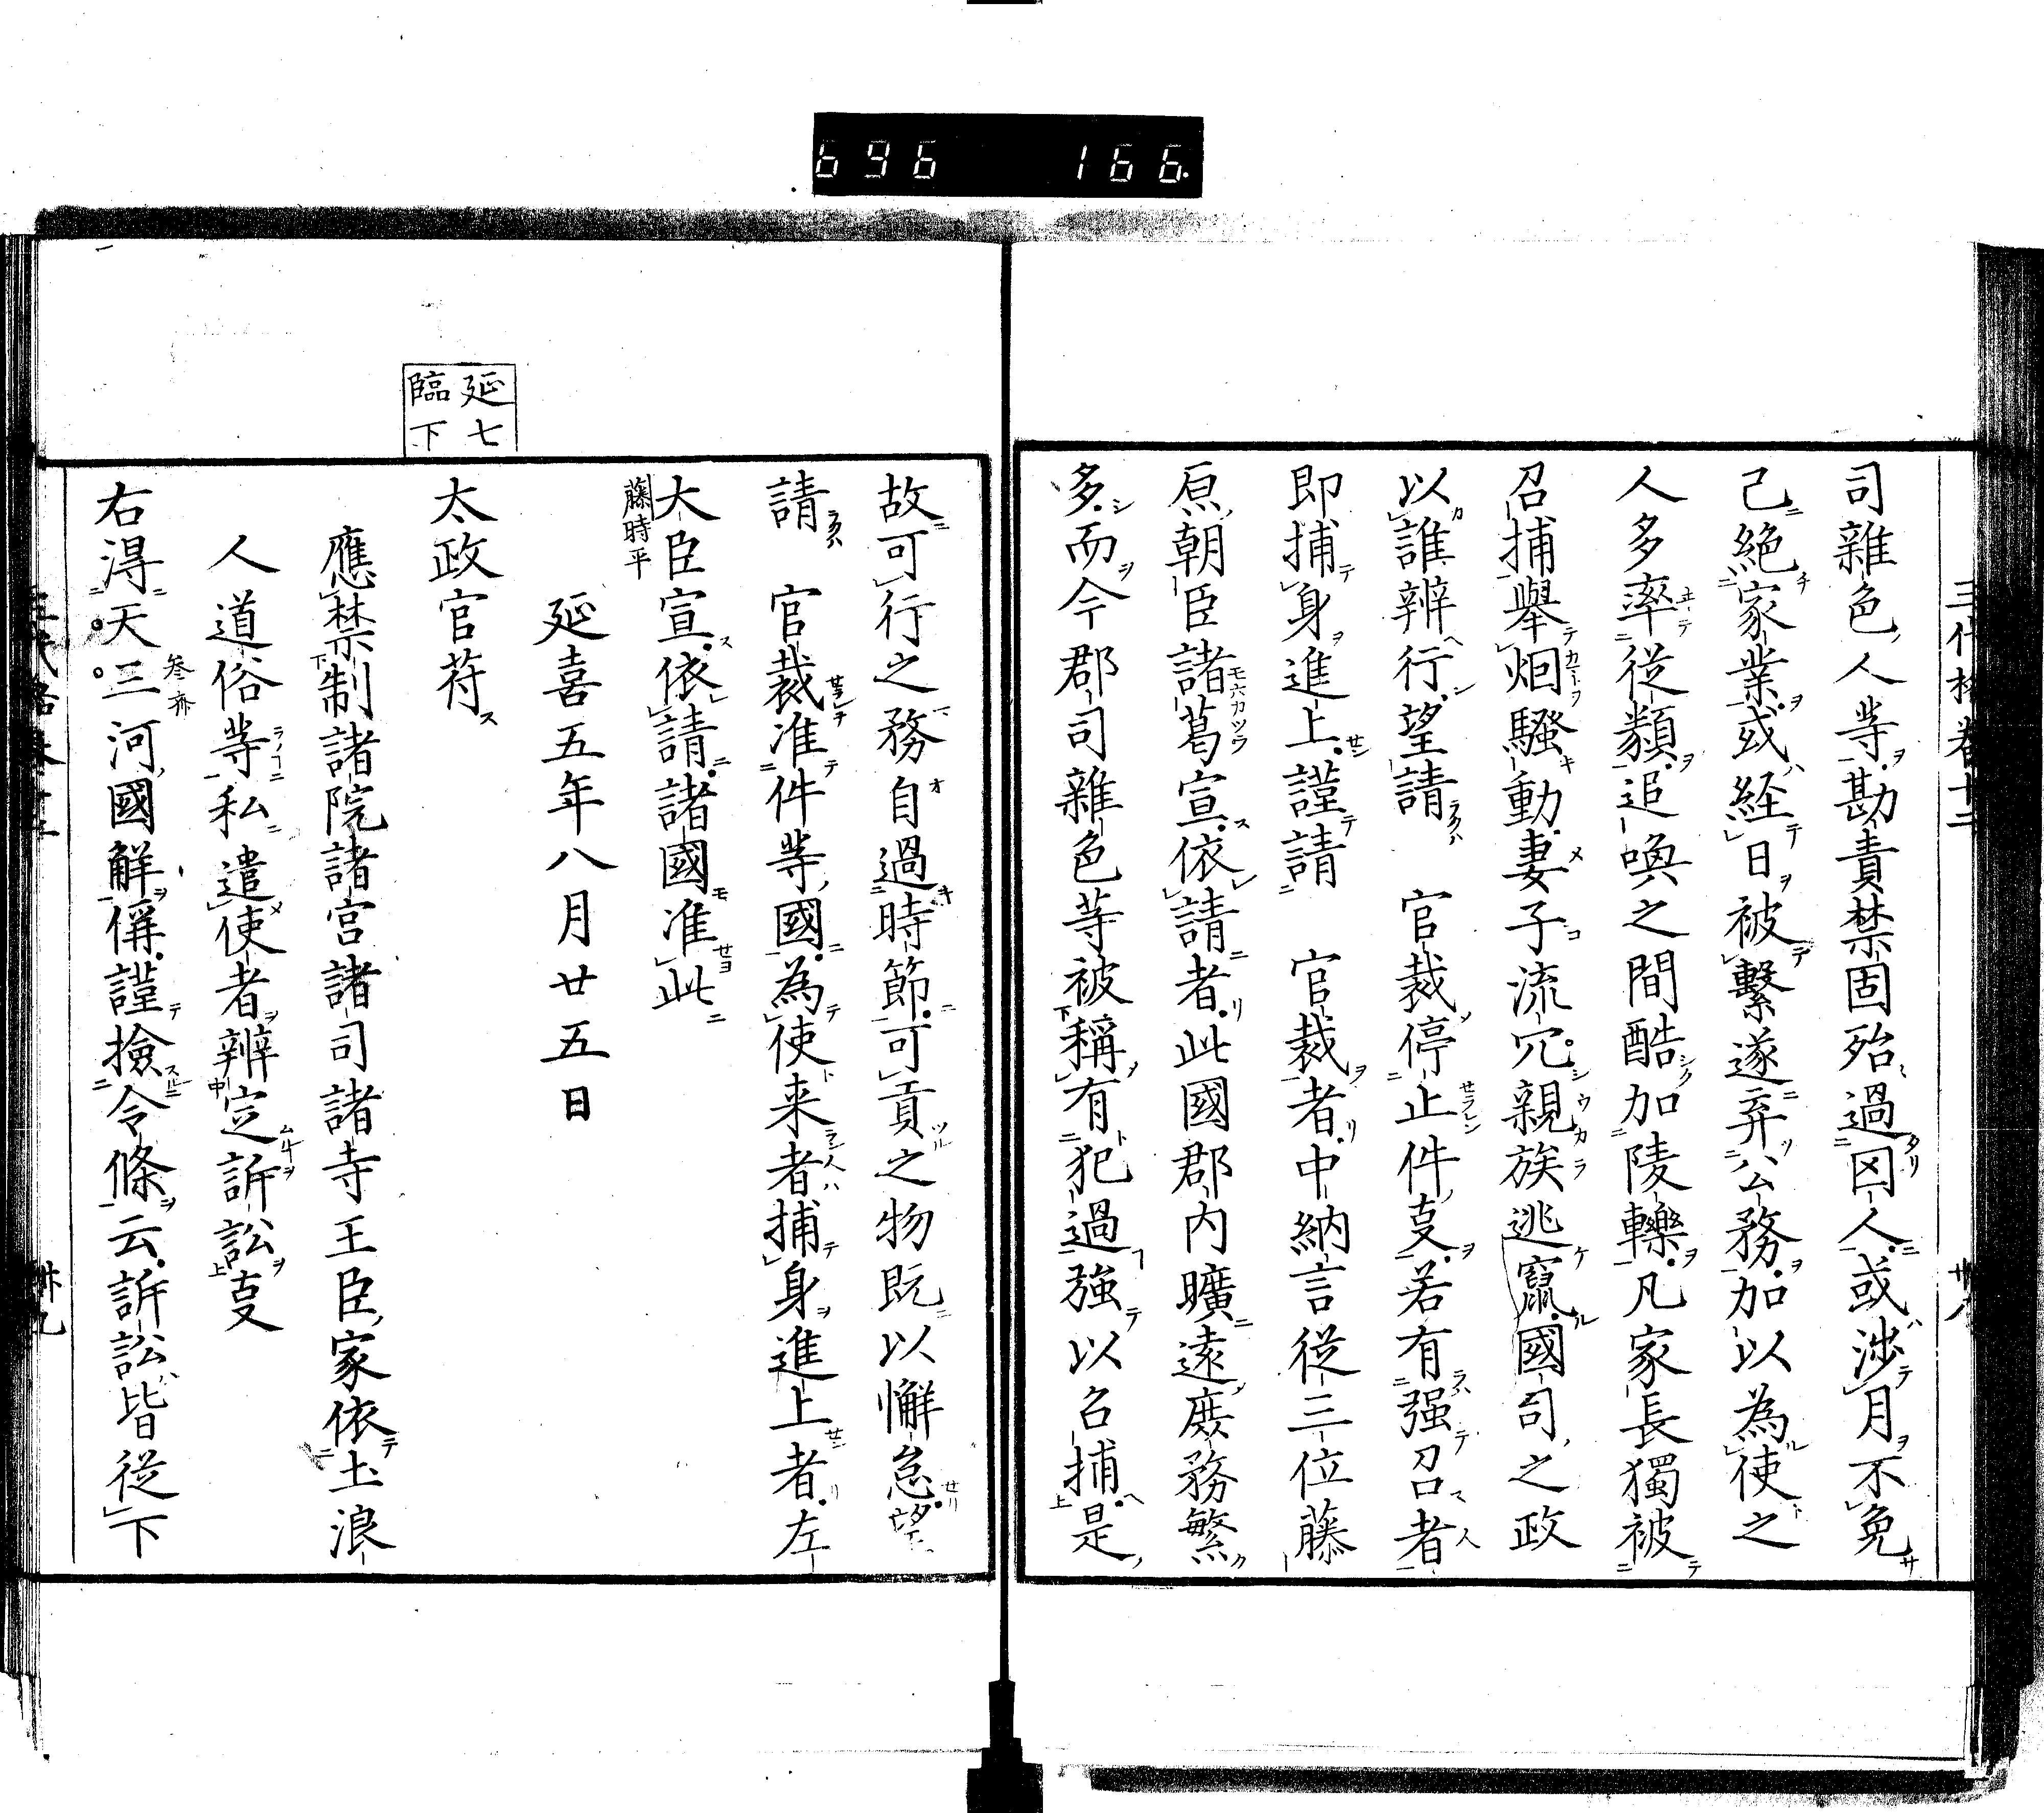 696 166
司雜色人等勘責禁固殆過囚人或渉月不免
己絶家業或経日被繫遂弃公務加以為使之
人多率従類追喚之間酷加陵轢凡家長獨被
召捕擧烟騷動妻子流宂親族逃竄國司之政
以誰辨行望請 官裁停止件㕝若有强召者
即捕身進上謹請 官裁者中納言従三位藤
原朝臣諸葛宣依請者此國郡内曠遠庶務繁
多而今郡司雜色等被稱有犯過強以召捕是
故可行之務自過時節可貢之物既以懈怠望
請 官裁准件等國為使来者捕身進上者左
大臣宣依請諸國准此
藤時平
延喜五年八月廿五日
延七
臨下
太政官苻
應禁制諸院諸宮諸司諸寺王臣家依土浪
人道俗等私遣使者辨定訴訟㕝
右得天三河國解偁謹撿令條云訴訟皆従下